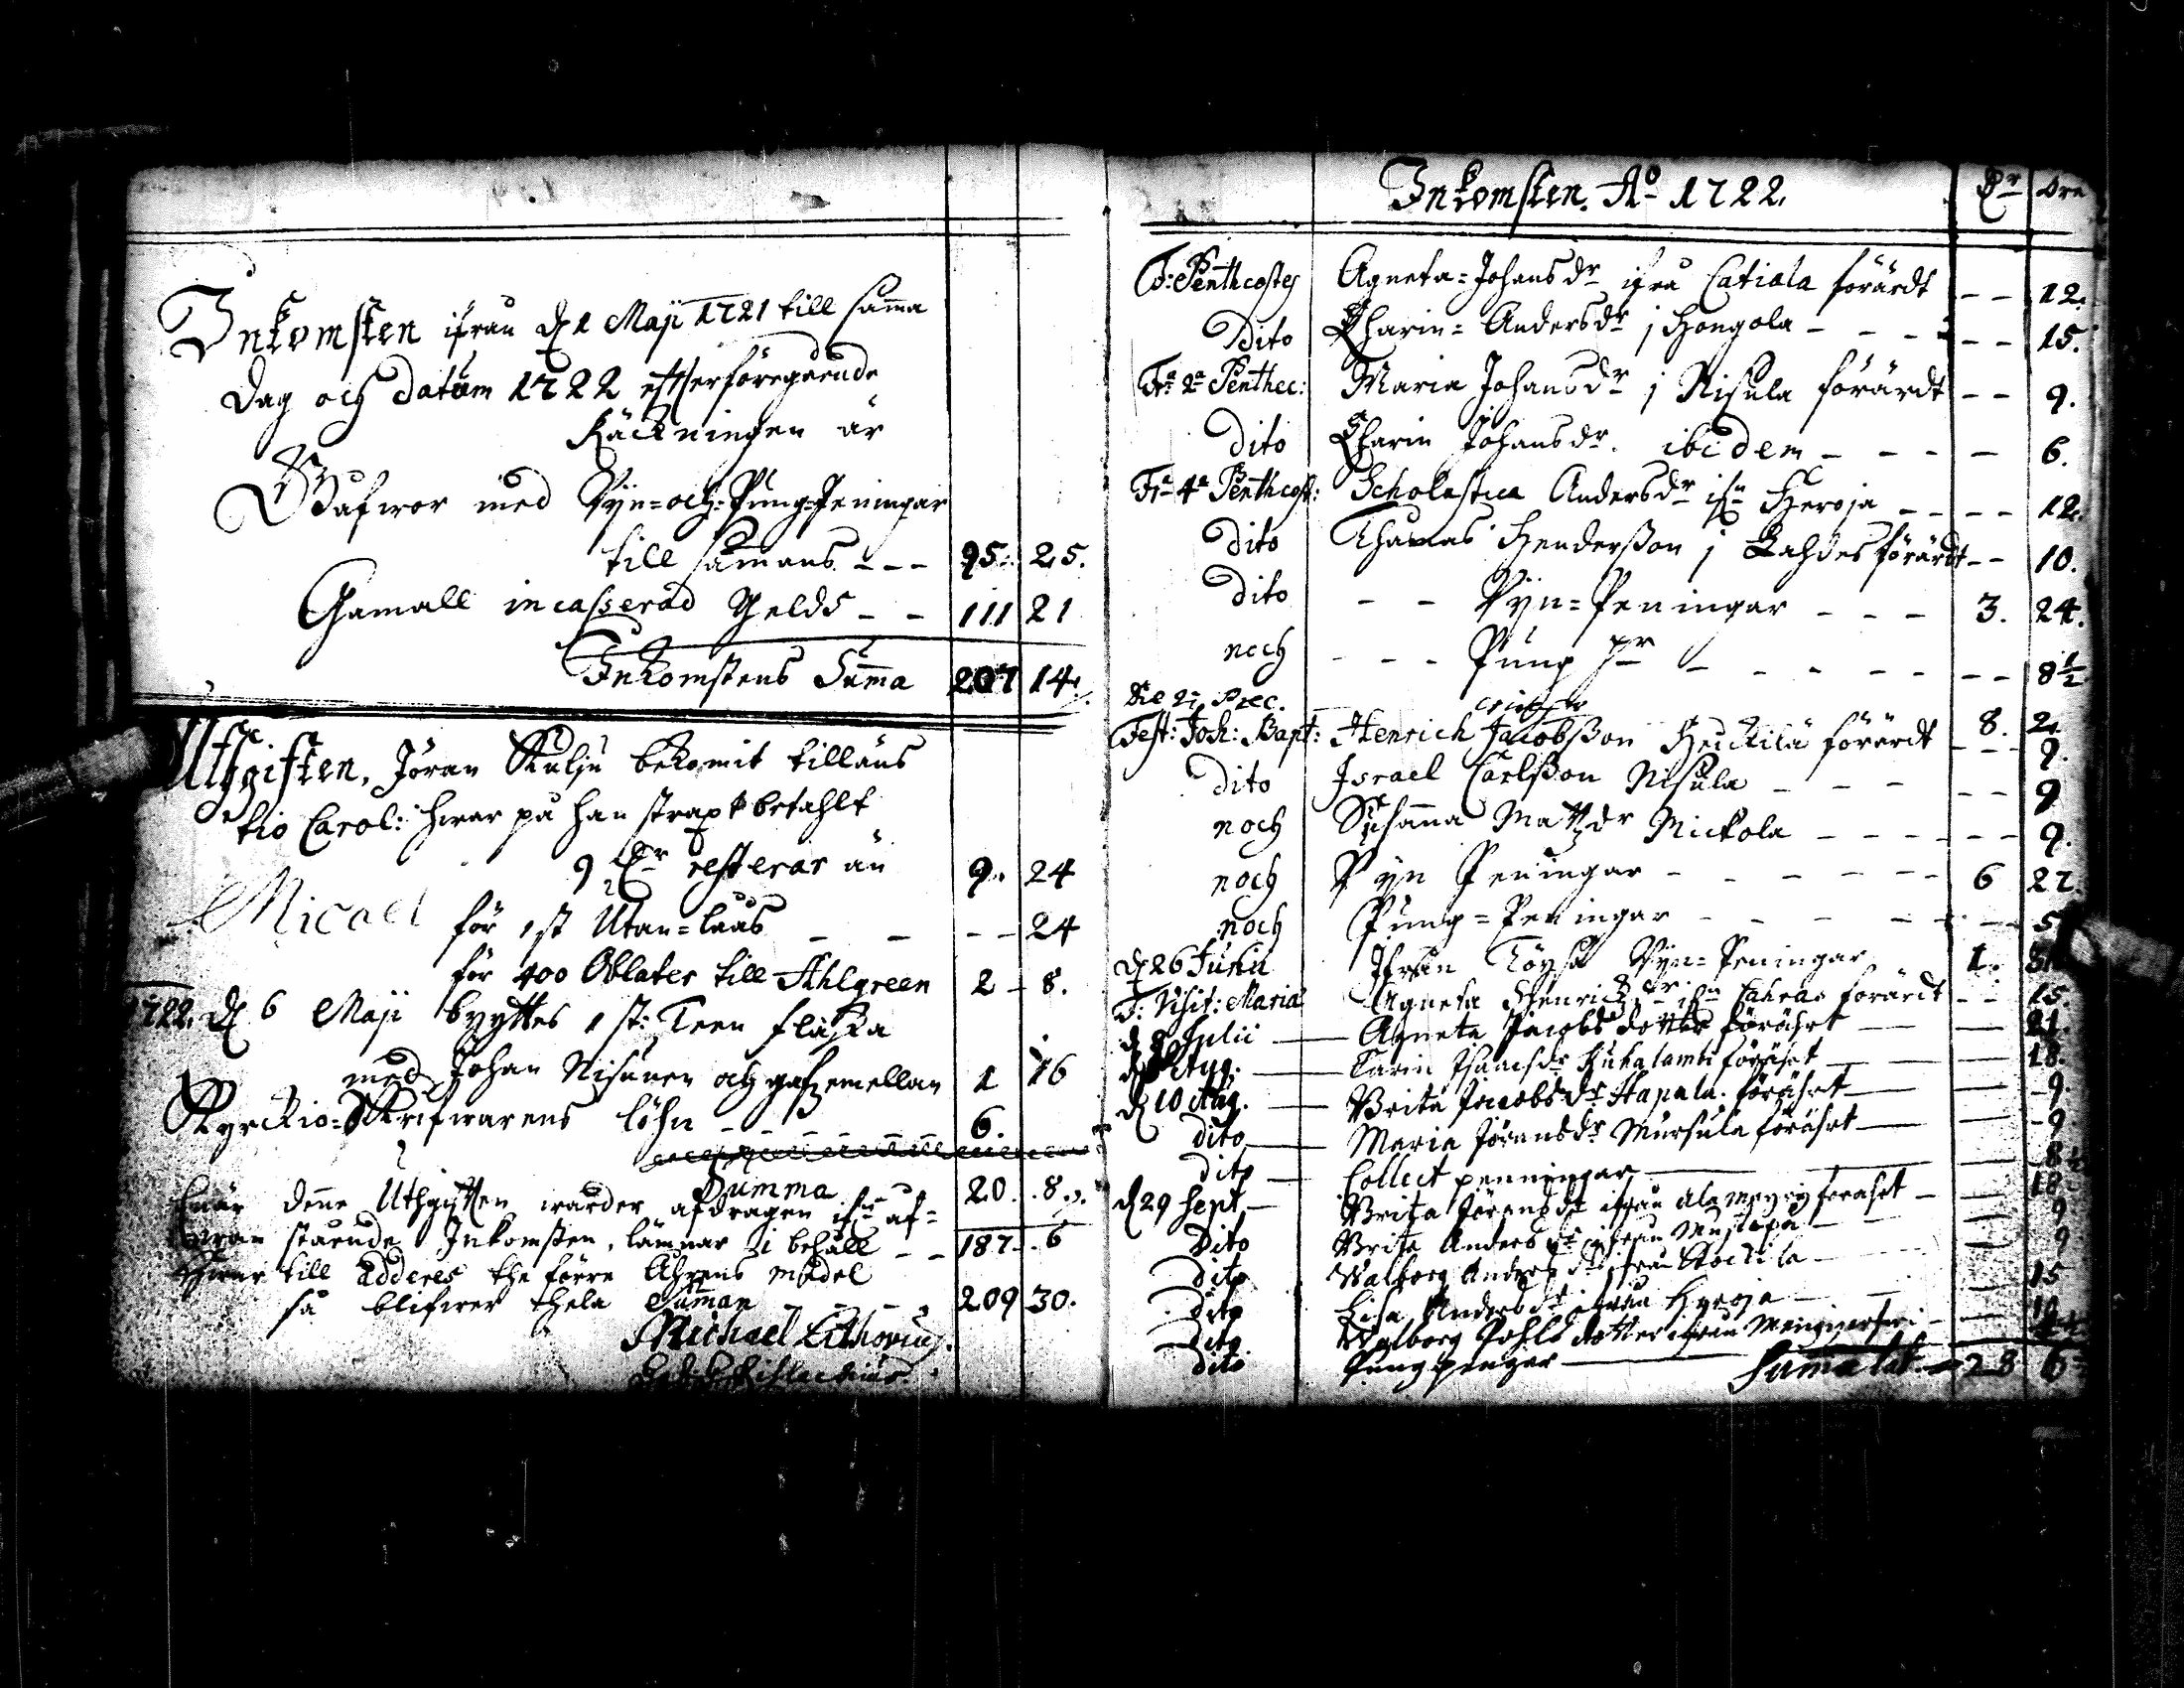 Inkomsten ifrån d 1 Maji 1721 till sama
dag och datum 1722 effter föregående
Räckningen är
Gåfwor med Vijn= och Pung=Peningar
till samans - - - 95. 25.
Gamall incasserad Gelds - - 111 21
Inkomstens Suma 207 14.
Uthgiften, Jöran Skulju bekomit till låns
tio Carol: hwar på han strax betahlt
9 Dr resterar än 9. 24
Micael för 1 st Utan=laas - - - - 24
för 400 Oblater till Ahlgreen 2 - 8.
1722. d 6 Maji byttes 1 st: Teen flaska
med Johan Nisunen och gafz emellan 1 16
Kyrckio=Skrifwarens löhn - - - - 6.
Summa 20. 8.
När dene Uthgifften warder afdragen ifrn of=
wan stående Inkomsten, lämnar i behåll - - 187. 6
Hwar till adderes the förre Åhrens medel
så blifwer hela Summan - - - 209 30.
Michael Lithovius.
Inkomsten. Ao 1722. Dr Öre
F: Penthcostes Agneta=Johansdr ifrå Catiala förärdt - - 12.
Dito Charin=Andersdr i Hongola - - - - - 15.
Fr 2a Penthec: Maria Johansdr i Nisula förärdt - - 9.
dito Charin Johansdr. ibidem - - - - 6.
Fr 4a Penthcost: Scholastica Andersdr ifrn Heroja - - - - 12.
dito Thomas Henderßon i Lahdes förärdt - - 10.
dito - - Vijn=Peningar - - - 3. 24.
noch - - - Pung pr - - - - - - - 8 1/2
Fest: Joh: Bapt: Henrich Jacobßon Heickilä förärdt - - - 9.
dito Israel Carlßon Nisula - - - - - 9
noch Susanna Mattzdr Mickola - - - - - - 9.
noch Vijn Peningar - - - - - - 6 22.
noch Pung=Peningar - - - - - - 5
d 26 Junii Ifrån Töysä Vijn=Peningar 1.
F: Visit: Mariæ Agneta Henrichzdr ifrn förärdt - - 15.
d Julii Agneta Jacobs dotter förährt 21.
Aug. Karin Isaacsdr Kukalambi föräht 18.
d 10 Aug. Brita Jacobsdr Hapala föräht 9.
dito Maria Jöransdr Mursula föräht 9
dito Collect penningar 8 1/2
d 29 Sept Brita Jöransdr ifrån föräht 18
Dito Brita Andersdr ifrån 9
Dito Walborg Andersdr ifrån 9
Dito Lisa Andersdr ifrån Hyroja 15
Dito Walborg Påhls dotter ifrån
dito Pung pengar Suma lat. 28 6